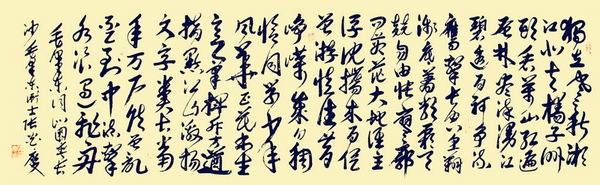 獨立寒秋湘
江北去橘子洲
頭看万山红遍
层林尽染漫江
碧透百舸争流
鹰擊长空鱼翔
浅底萬類霜天
競自由悵寥廓
问苍茫大地谁主
浮沈携来百侣
曾游憶往昔
峥嵘岁月稠
恰同学少年
风華正茂书生
意气挥斥方遒
指點江山激扬
文字粪土当
年万户侯曾
记否到中流擊
水浪遏飞舟
毛泽东词沁園春长
沙